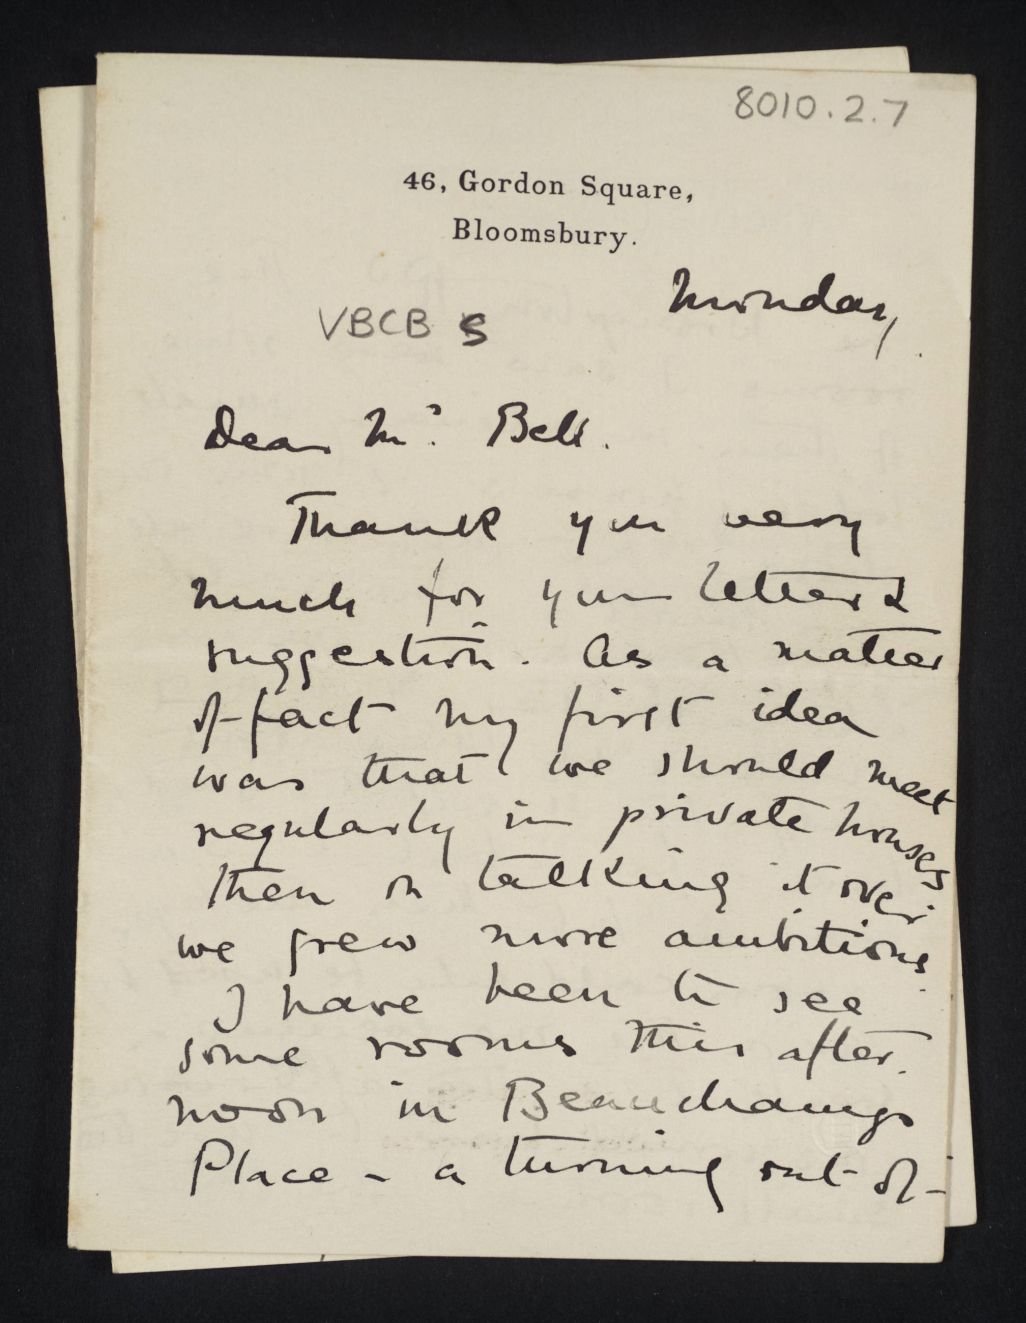 8010.2.7
46, Gordon Square,
Bloomsbury.
Monday,
VBCB 5
Dear Mr. Bell.
Thank you very
much for your letter &
suggestion. As a matter
of fact my first idea
was that we should meet
regularly in private houses
then on talking it over
we grew more ambitious.
I have been to see
some rooms this after.
noon in Beauchamp
Place - a turning out of